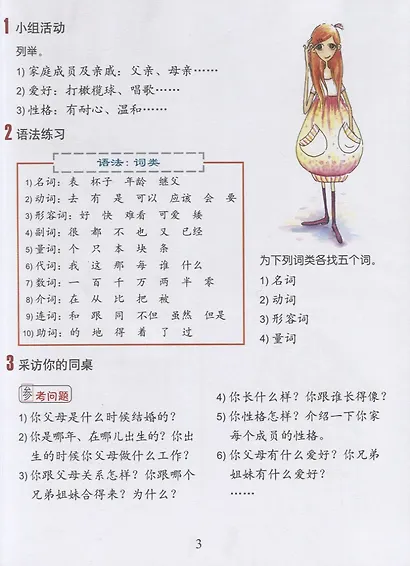 1 小组活动
列举。
1) 家庭成员及亲戚：父亲、母亲……
2) 爱好：打橄榄球、唱歌……
3) 性格：有耐心、温和……
2 语法练习
语法：词类
1) 名词：表 杯子 年龄 继父
2) 动词：去 有 是 可以 应该 会 要
3) 形容词：好 快 难看 可爱 矮
4) 副词：很 都 不 也 又 已经
5) 量词：个 只 本 块 条
6) 代词：我 这 那 每 谁 什么
7) 数词：一 百 千 万 两 半 零
8) 介词：在 从 比 把 被
9) 连词：和 跟 同 不但 虽然 但是
10) 助词：的 地 得 着 了 过
为下列词类各找五个词。
1) 名词
2) 动词
3) 形容词
4) 量词
3 采访你的同桌
参考问题
1) 你父母是什么时候结婚的？
2) 你是哪年、在哪儿出生的？你出
生的时候你父母做什么工作？
3) 你跟父母关系怎样？你跟哪个
兄弟姐妹合得来？为什么？
4) 你长什么样？你跟谁长得像？
5) 你性格怎样？介绍一下你家
每个成员的性格。
6) 你父母有什么爱好？你兄弟
姐妹有什么爱好？
……
3